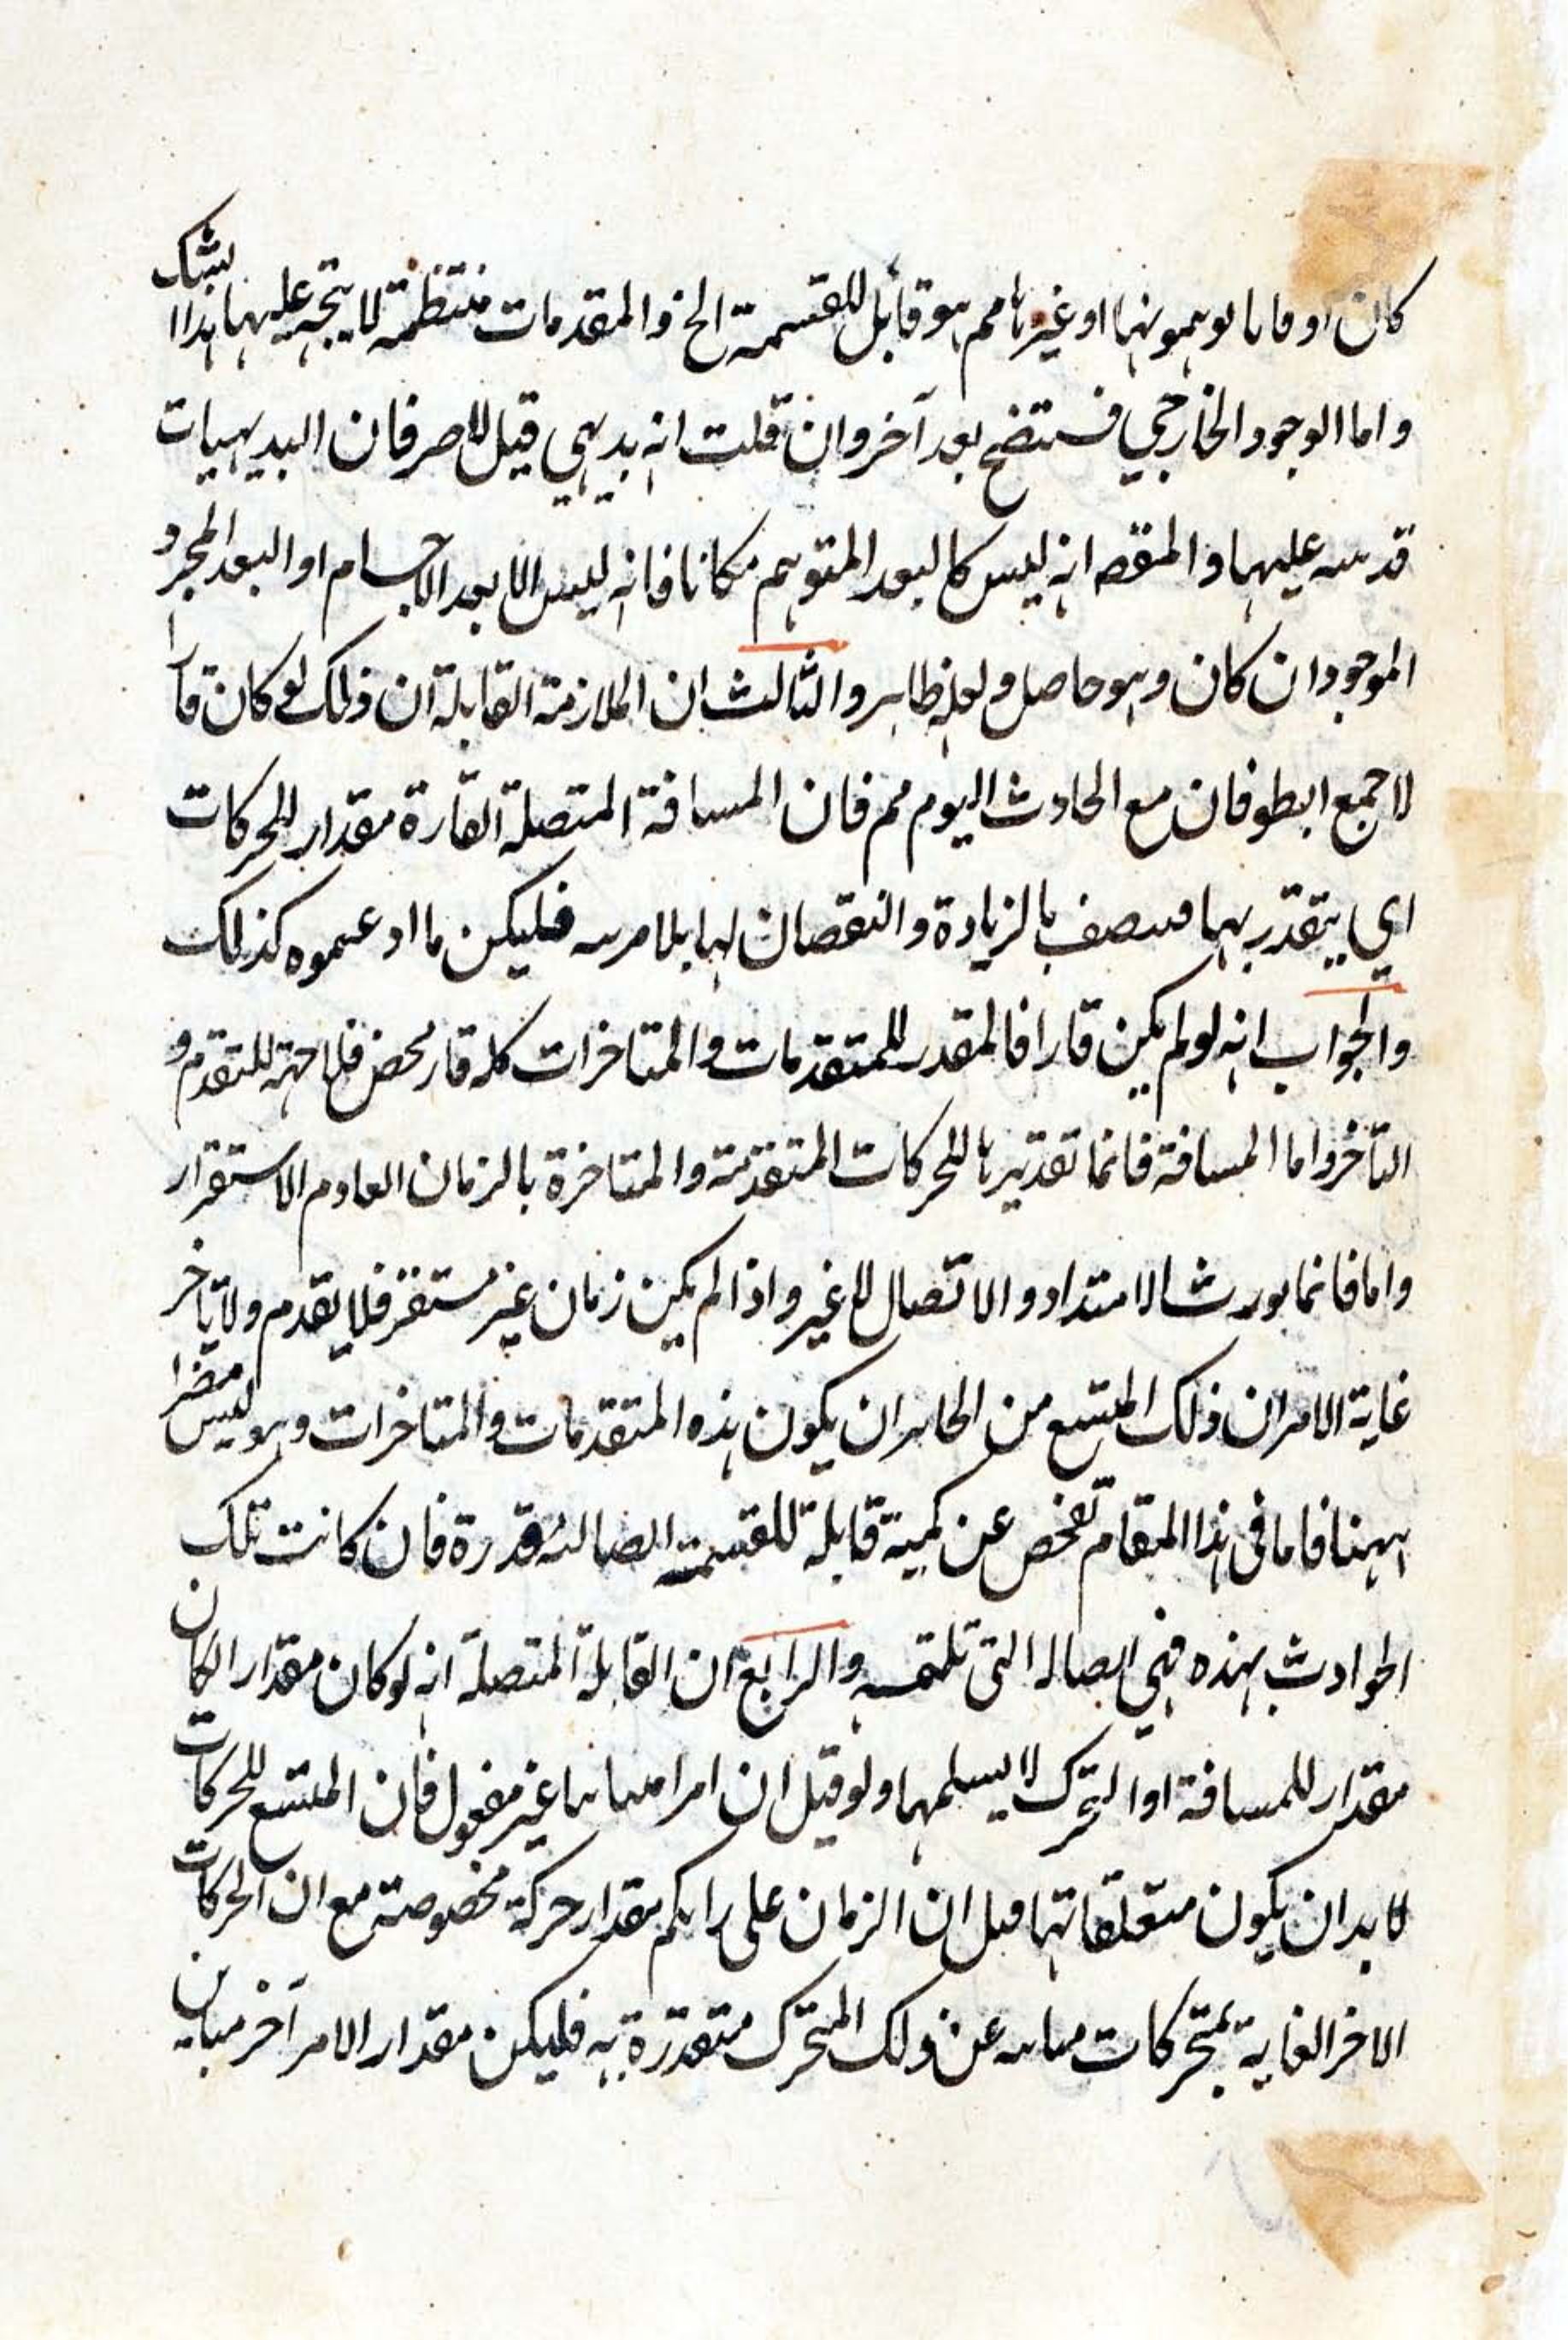 كان او قا با لوہمو نہا او غيرہا مم ہو قابل للقسمة الخ والمقدمات منتظمة لا يتجہ عليہا ہذا الشك
واما الوجود الخارجي فستضح بعد آخر وان قلت انه بديہي قيل للاصر فان البديہيات
قد سه عليہا والمنقصہ انه ليس كالبعد المتوہم مكانا فانه ليس الا بعد الاجسام او البعد المجرد
الموجود ان كان وہو حاصل ولعله ظاہر والثالث ان الملازمة القابلة ان ذلك لو كان قارا
لاجمع ابطوفان مع الحادث اليوم مم فان المسافة المتصلة القارة مقدار للحركات
اي يتقدر بہا فيتصف بالزيادة والنقصان لہا بلا مريه فليكن ما ادعموه كذلك
والجواب انه لو لم يكن قارا فالمقدر للمتقدمات والمتاخرات كله قار محض فلا جهة للتقدم و
التأخر واما المسافة فانما تقديرہا للحركات المتقدمة والمتاخرة بالزمان العادم الاستقرار
واما فانما يورث الامتداد والاتصال للغير واذا لم يكن زمان غير مستقر فلا يقدم ولا يتأخر
غاية الامر ان ذلك المتسع من الجائز ان يكون ہذه المتقدمات والمتاخرات وہو ليس مضرا
ہہنا فاما في ہذا المقام تفحص عن كمية قابلة للقسمة قدرة فان كانت تلك
الحوادث بہذه فہي التي تلتمسه والرابع ان القابلة المتصلة انه لو كان مقدار الكان
مقدار للمسافة او التحرك لا يسلمہا ولو قيل ان امرا مباينا غير مفعول فان المتسع للحركات
لا بد ان يكون متعلقاتہا قيل ان الزمان على رايكم مقدار حركة مخصوصة مع ان الحركات
الاخر الغاية بمتحركات مباينة عن ذلك المتحرك متقدرة به فليكن مقدار الامر آخر مباين